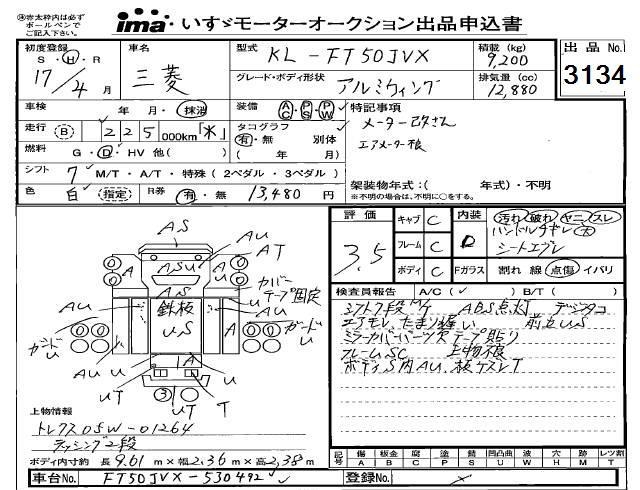 ㊟赤太枠内は必ず
ボールペンで
ご記入下さい。
ima いすゞモーターオークション出品申込書
初度登録 S・H・R 17/4 月
車名 三菱
型式 KL-FT50JVX
グレード・ボディ形状 アルミウィング
積載 (kg) 9,200
排気量 (cc) 12,880
出品No. 3134
車検 年 月・抹消
装備 AC PS PW
特記事項
メーター改ざん
エアメーター板
走行 (B) 225 000km「米」
タコグラフ 有・無 別体
( 年 月)
燃料 G・D・HV 他( )
シフト 7 M/T・A/T・特殊(2ペダル・3ペダル)
架装物年式:( 年式)・不明
※不明の場合は、不明に○をする。
色 白 (指定) R券 有・無 13,480 円
評価 3.5
キャブ C
フレーム C
ボディ C
内装 D
Fガラス
汚れ 破れ ヤニ スレ
シートエグレ
割れ 線 点傷 イバリ
検査員報告 A/C(✓) B/T( )
シフト7段M/T ABS点灯 デジタコ
エアモレ,たまり遅い 前立US
ミラーカバーパーツ欠テープ貼り
フレームSC 上物板
ボディS内AU.板ケズレT
AS
AU
AT
A
ASU
AS
鉄板
US
カバー
テープ固定
AU
AU
ガードU
ガードU
A
AU
U
A
U
UT
③
UT
T
上物情報
トレクス05W-01264
ラッシング2段
ボディ内寸約 長9.61m×幅2.36m×高2.38m
記号 傷A 板金B 腐C 塗P 錆S 凹凸曲U 波W 穴H 跡M レツ割T
車台No. FT50JVX-530492
登録No.